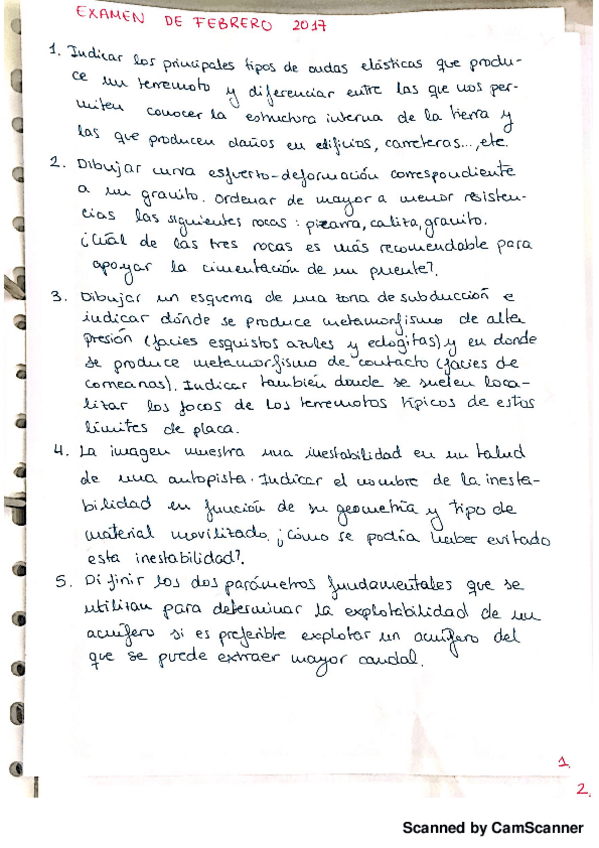 EXAMEN DE FEBRERO 2017
1. Indicar los principales tipos de ondas elásticas que produ-
ce un terremoto y diferenciar entre las que nos per-
miten conocer la estructura interna de la tierra y
las que producen daños en edificios, carreteras..., etc.
2. Dibujar curva esfuerto-deformación correspondiente
a un granito. Ordenar de mayor a menor resisten-
cias las siguientes rocas: pizarra, caliza, granito.
¿Cuál de las tres rocas es más recomendable para
apoyar la cimentación de un puente?.
3. Dibujar un esquema de una zona de subducción e
indicar dónde se produce metamorfismo de alta
presión (facies esquistos azules y eclogitas) y en donde
se produce metamorfismo de contacto (facies de
corneanas). Indicar también donde se suelen loca-
lizar los focos de los terremotos típicos de estos
límites de placa.
4. La imagen muestra una inestabilidad en un talud
de una autopista. Indicar el nombre de la inesta-
bilidad en función de su geometría y tipo de
material movilizado. ¿Cómo se podría haber evitado
esta inestabilidad?.
5. Difinir los dos parámetros fundamentales que se
utilizan para determinar la explotabilidad de un
acuífero si es preferible explotar un acuífero del
que se puede extraer mayor caudal.
1.
2.
Scanned by CamScanner